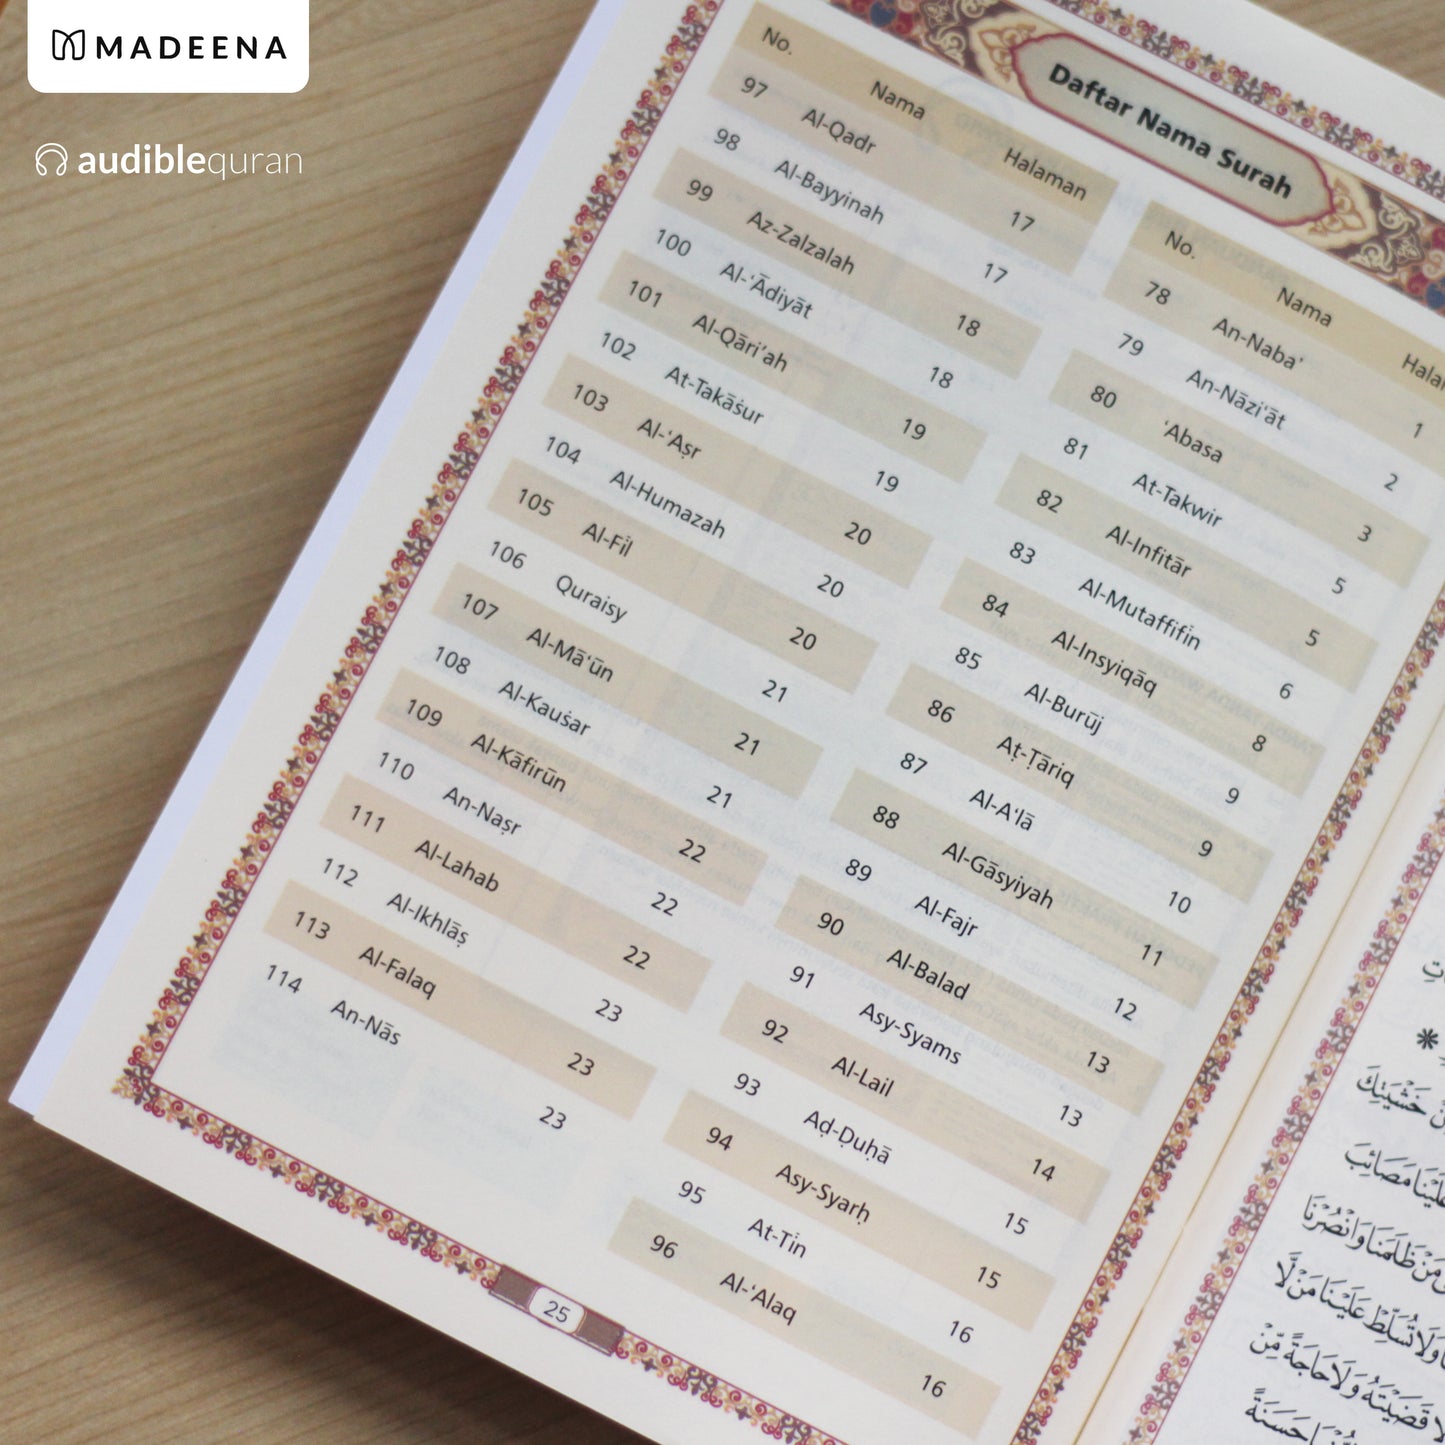 MADEENA
audiblequran
Daftar Nama Surah
No. Nama Halaman
97 Al-Qadr 17
98 Al-Bayyinah 17
99 Az-Zalzalah 18
100 Al-‘Ādiyāt 18
101 Al-Qāri’ah 19
102 At-Takāṡur 19
103 Al-‘Aṣr 20
104 Al-Humazah 20
105 Al-Fīl 20
106 Quraisy 21
107 Al-Mā‘ūn 21
108 Al-Kauṡar 21
109 Al-Kāfirūn 22
110 An-Naṣr 22
111 Al-Lahab 22
112 Al-Ikhlāṣ 23
113 Al-Falaq 23
114 An-Nās 23
No. Nama
78 An-Naba‘ 1
79 An-Nāzi‘āt 2
80 ‘Abasa 3
81 At-Takwir 5
82 Al-Infitār 5
83 Al-Mutaffifīn 6
84 Al-Insyiqāq 8
85 Al-Burūj 9
86 Aṭ-Ṭāriq 9
87 Al-A‘lā 10
88 Al-Gāsyiyah 11
89 Al-Fajr 12
90 Al-Balad 13
91 Asy-Syams 13
92 Al-Lail 14
93 Aḍ-Ḍuḥā 15
94 Asy-Syarḥ 15
95 At-Tīn 16
96 Al-‘Alaq 16
25
خَشْيَتِكَ
عَلَيْنَا مَصَائِبَ
مَنْ ظَلَمَنَا وَانْصُرْنَا
وَلَا تُسَلِّطْ عَلَيْنَا مَنْ لَّا
قَضَيْتَهُ وَلَا حَاجَةً مِّنْ
حَسَنَةً